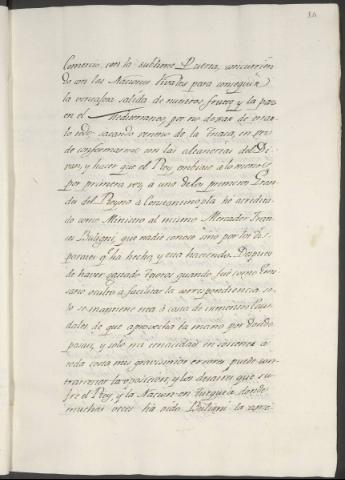 Comercio con la sublime Puerta, concurrien
do con las Naciones rivales para conseguir
la ventajosa salida de nuestros frutos y la paz
en el Mediterraneo, por no dexar de errar
lo todo sacando veneno de la Triaca, en vez
de conformarnos con las altanerias del Di
van, y hacer que el Rey embiase a lo menos
por primera vez, a uno de los primeros Gran
des del Reyno á Constantinopla ha acredita
do como Ministro al mismo Mercader Juan
Buligni, que nadie conoce sino por los dis
parates q.e ha hecho, y esta haciendo. Despues
de haver ganado tesoros quando fué como Emi
sario oculto a facilitar la correspondiencia, so
lo se mantiene era á costa de inmensos Cau
dales de que aprovecha la mano por donde
pasan, y solo mi tenacidad en sostener á
toda costa mis gravisimos errores puede con
trarrestar la oposicion, y los desaires que su
fre el Rey, y la Nacion en Turquia donde
muchas veces ha oido Buligni la